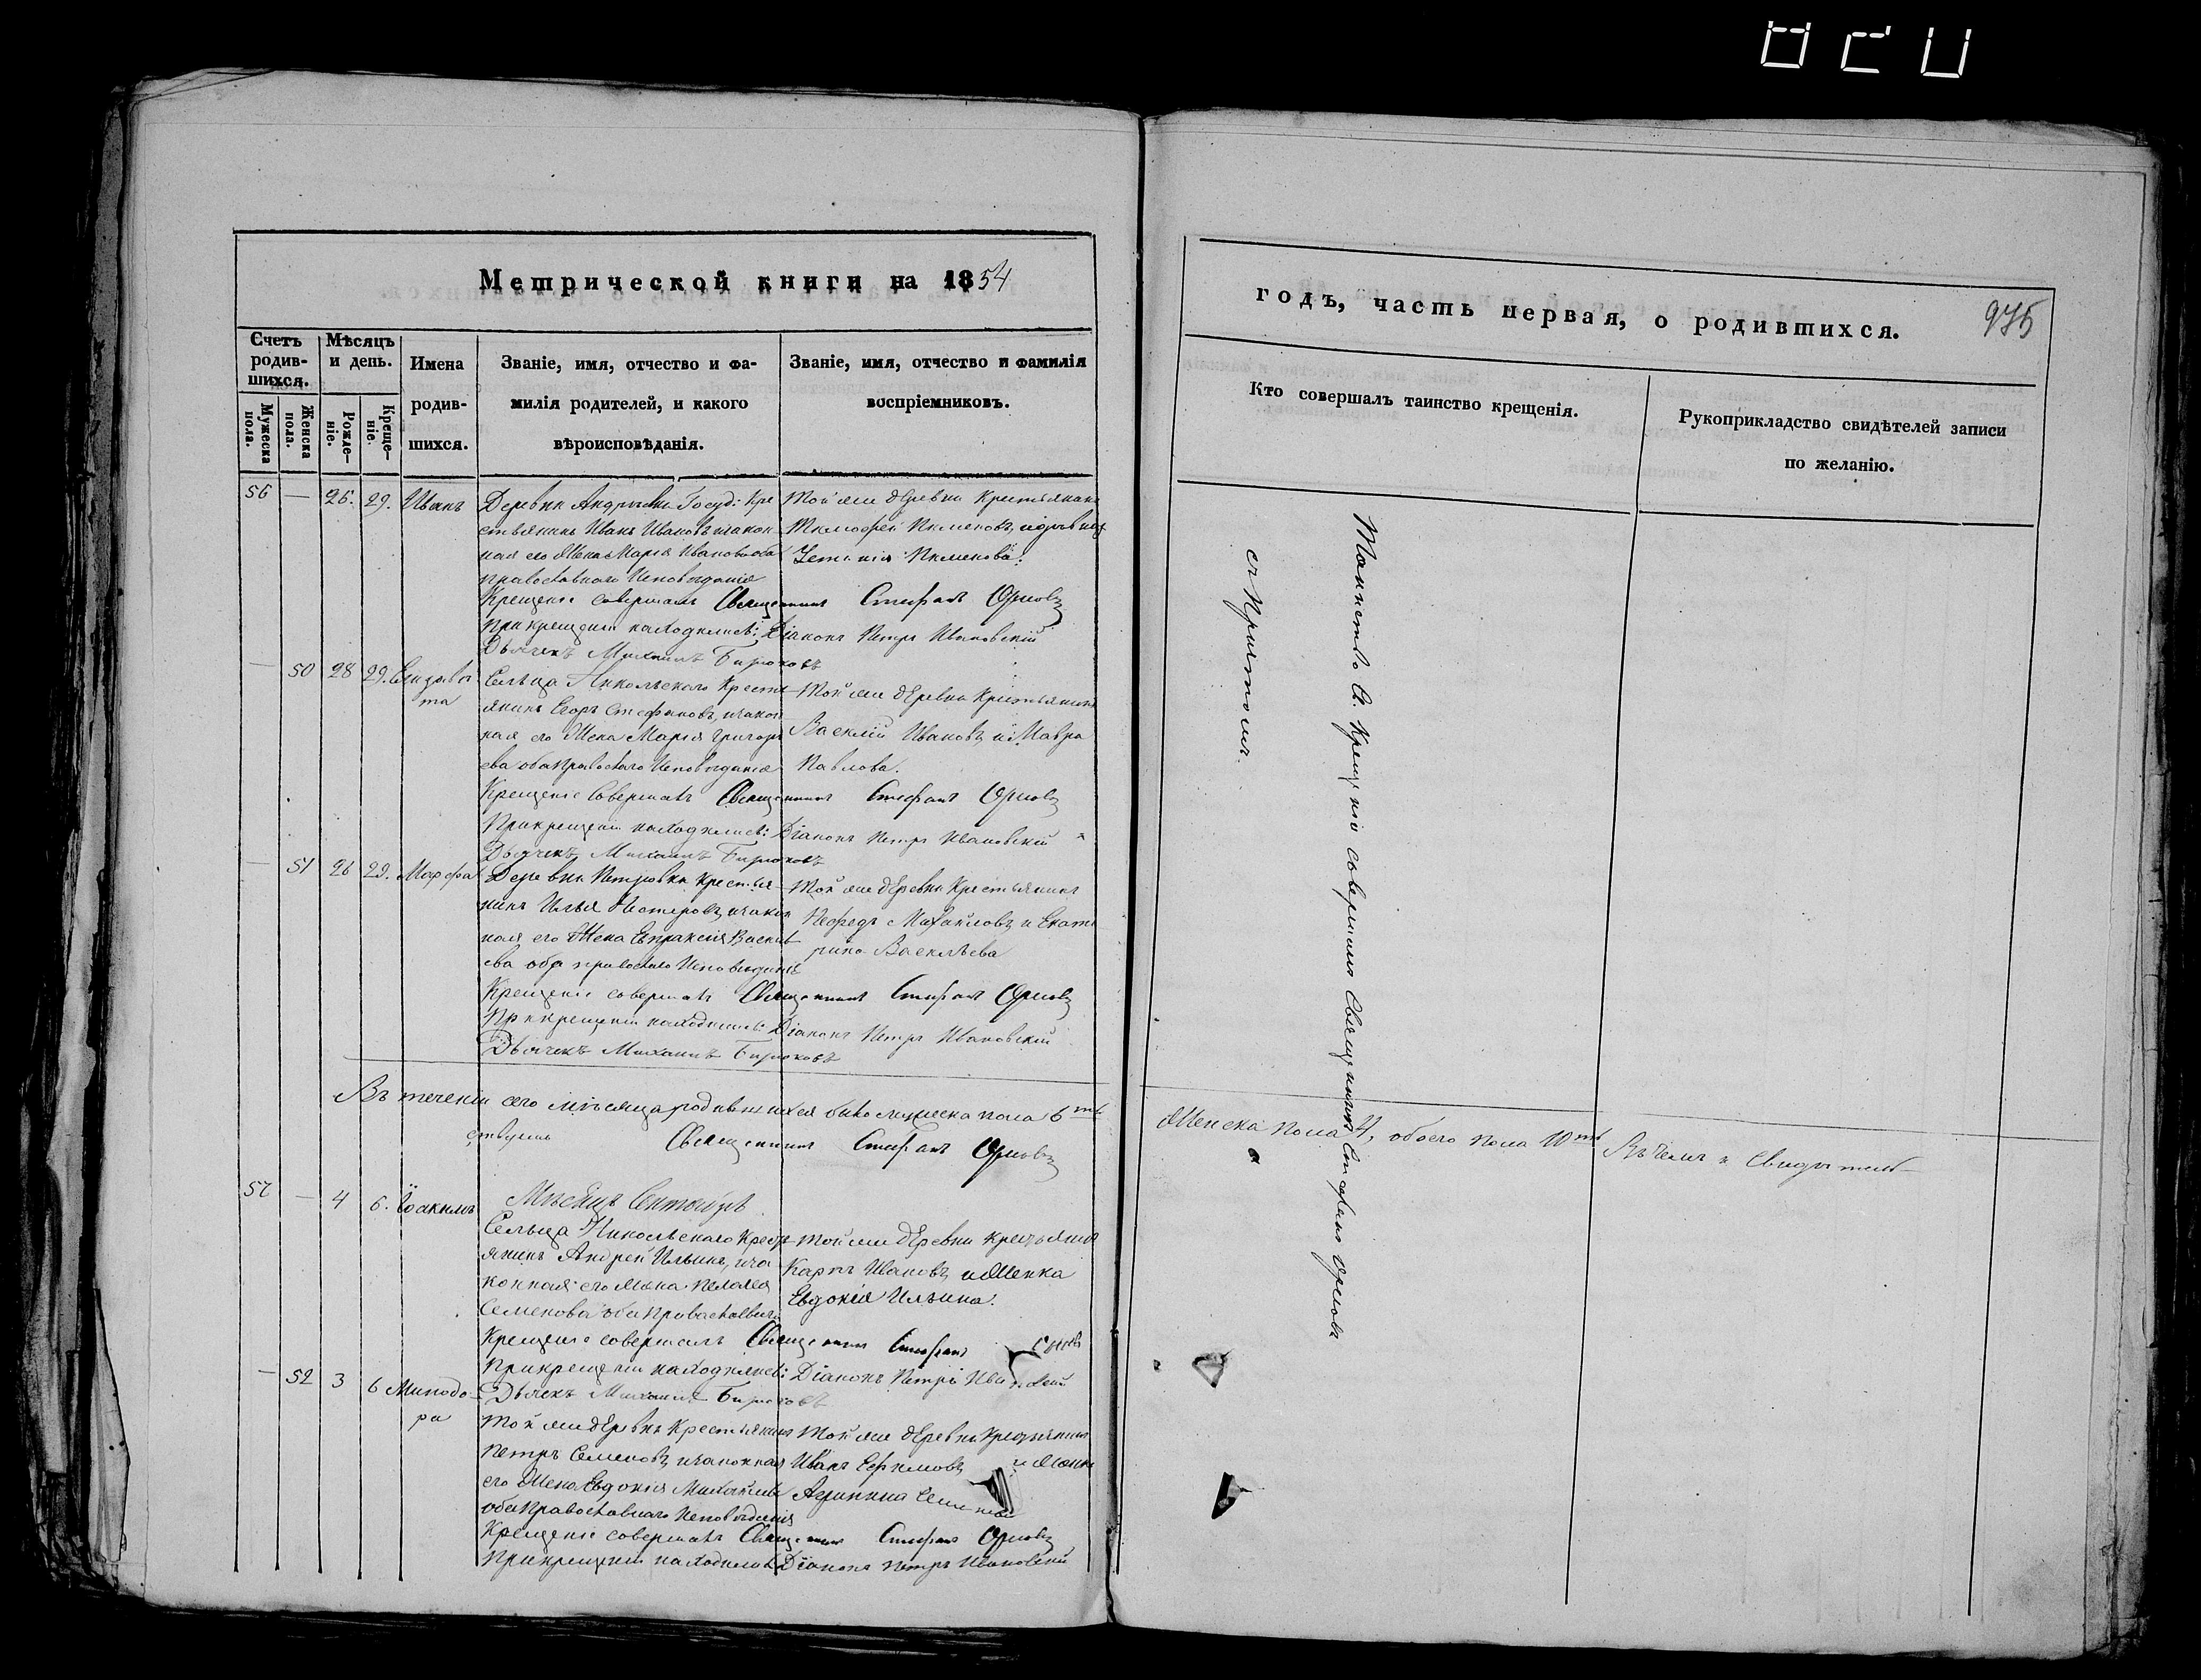 Метрической книги на 1854
Счетъ родив-шихся.
Мужеска пола.
Женска пола.
Мѣсяцъ и день.
Рожде-ніе.
Креще-ніе.
Имена
родив-
шихся.
Званіе, имя, отчество и фа-
милія родителей, и какого
вѣроисповѣданія.
Званіе, имя, отчество и фамилія
воспріемниковъ.
56 — 25. 29. Иванъ
Деревни Госуд: Кре
стьянинъ Иванъ Ивановъ и закон
ная его жена Марія Иванова оба
православнаго Исповѣданія
Той же деревни Крестьянинъ
Тимофей Пименовъ
Пименова:
Крещеніе совершалъ Священникъ Стефанъ Орловъ
При крещеніи находились: Діаконъ Петръ Ивановскій
Дьячекъ Михаилъ Бирюковъ
— 50 28 29. Елизаве
та
Сельца Никольскаго Кресть
янинъ Егоръ Стефановъ, и закон
ная его жена Марія Григорь
ева оба Православнаго Исповѣданія
Той же деревни Крестьянинъ
Василій Ивановъ и Мавра
Павлова.
Крещеніе Совершалъ Священникъ Стефанъ Орловъ
При крещеніи находились: Діаконъ Петръ Ивановскій
Дьячекъ Михаилъ Бирюковъ
— 51 26 29. Марфа
Деревни Петровки Крестья
нинъ Илья Нестеровъ, и закон
ная его жена Евпраксія Василь
ева оба православнаго Исповѣданія
Той же деревни Крестьянинъ
Нефедъ Михайловъ и Екате
рина Васильева
Крещеніе совершалъ Священникъ Стефанъ Орловъ
При крещеніи находились: Діаконъ Петръ Ивановскій
Дьячекъ Михаилъ Бирюковъ
Въ теченіи сего мѣсяца родившихся было мужеска пола 6ть
ствуемъ Священникъ Стефанъ Орловъ
Мѣсяцъ Сентябрь
57 — 4 6. Іоакимъ
Сельца Никольскаго Крестъ
янинъ Андрей Ильинъ, и за
конная его жена Пелагея
Семенова оба Православныя
Той же деревни Крестьянинъ
Карпъ Ивановъ и женка
Евдокія Ильина.
Крещеніе совершалъ Священникъ Стефанъ
При крещеніи находились: Діаконъ Петръ
Дьячекъ Михаилъ Бирюковъ
— 52 3 6 Минодо-
ра
Той же деревни Крестьянинъ
Петръ Семеновъ и законная
его жена Евдокія Михайлова
оба Православнаго Исповѣданія
Той же деревни Крестьянинъ
Иванъ Ефимовъ и женка
Агрипина
Крещеніе совершалъ Священникъ Стефанъ Орловъ
При крещеніи находились Діаконъ Петръ Ивановскій
годъ, часть первая, о родившихся.
975
Кто совершалъ таинство крещенія.
Рукоприкладство свидѣтелей записи
по желанію.
Таинство Св. Крещенія совершилъ Священникъ Стефанъ Орловъ
съ Причтомъ.
Женска пола 4, обоего пола 10ть Въ чемъ и Свидѣтель-